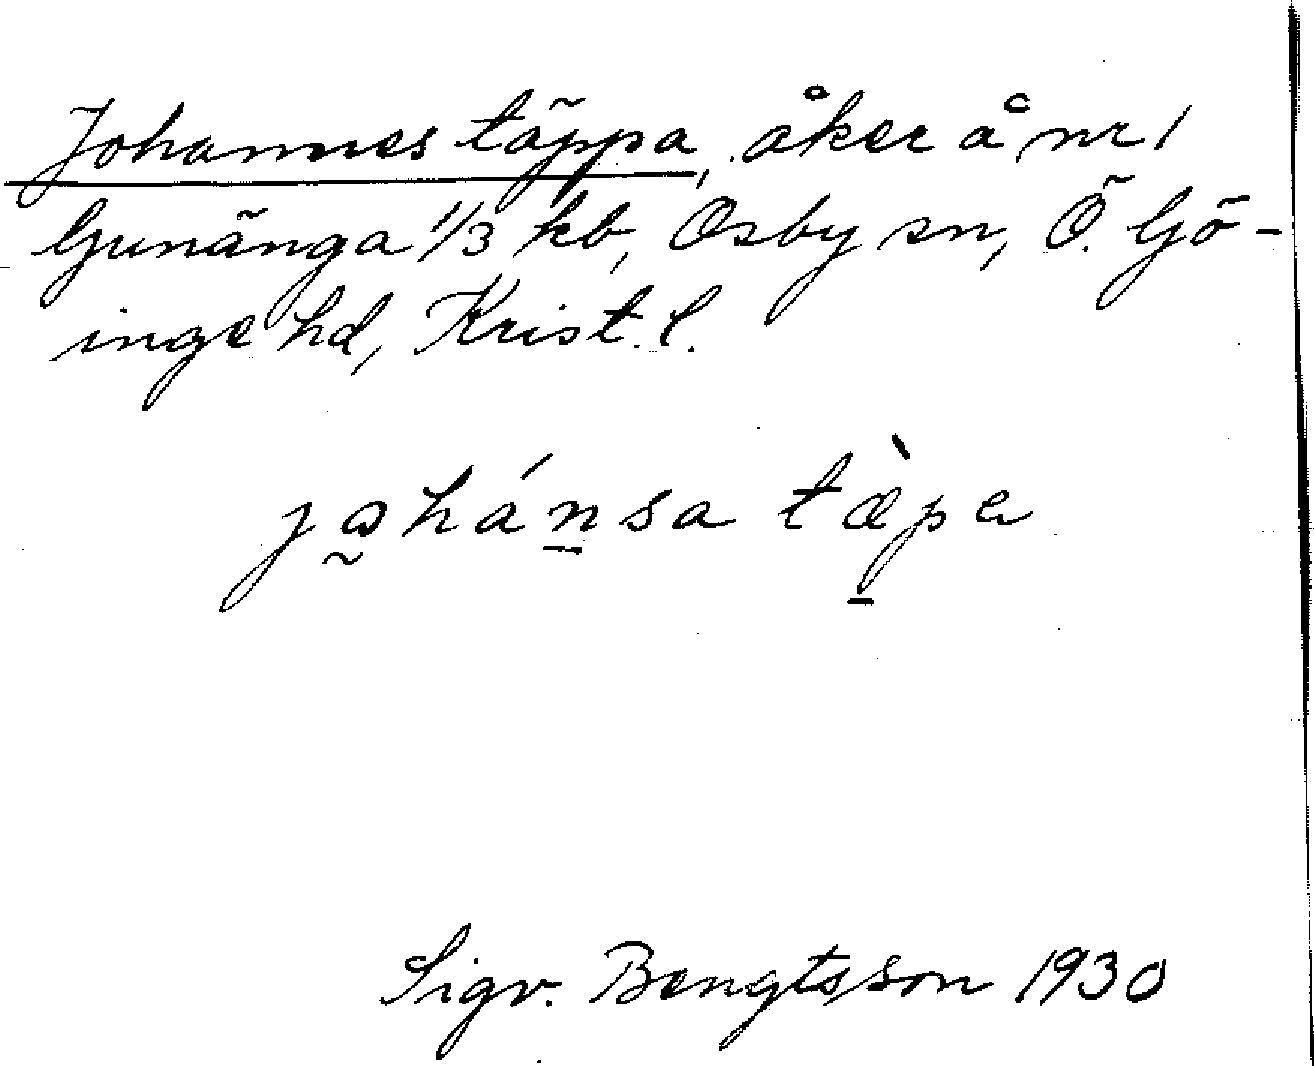 Johannes täppa, åker å nr 1
Gunänga 1/3 hb, Osby sn, Ö. Gö-
inge hd, Krist. l.
jo̰hánsa tæ̀pa
Sigv. Bengtsson 1930